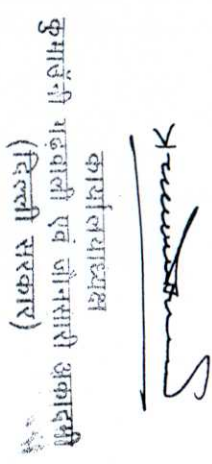 कार्यालयाध्यक्ष
कुमाउंनी गढ़वाली एवं जौनसारी अकादमी
(दिल्ली सरकार)